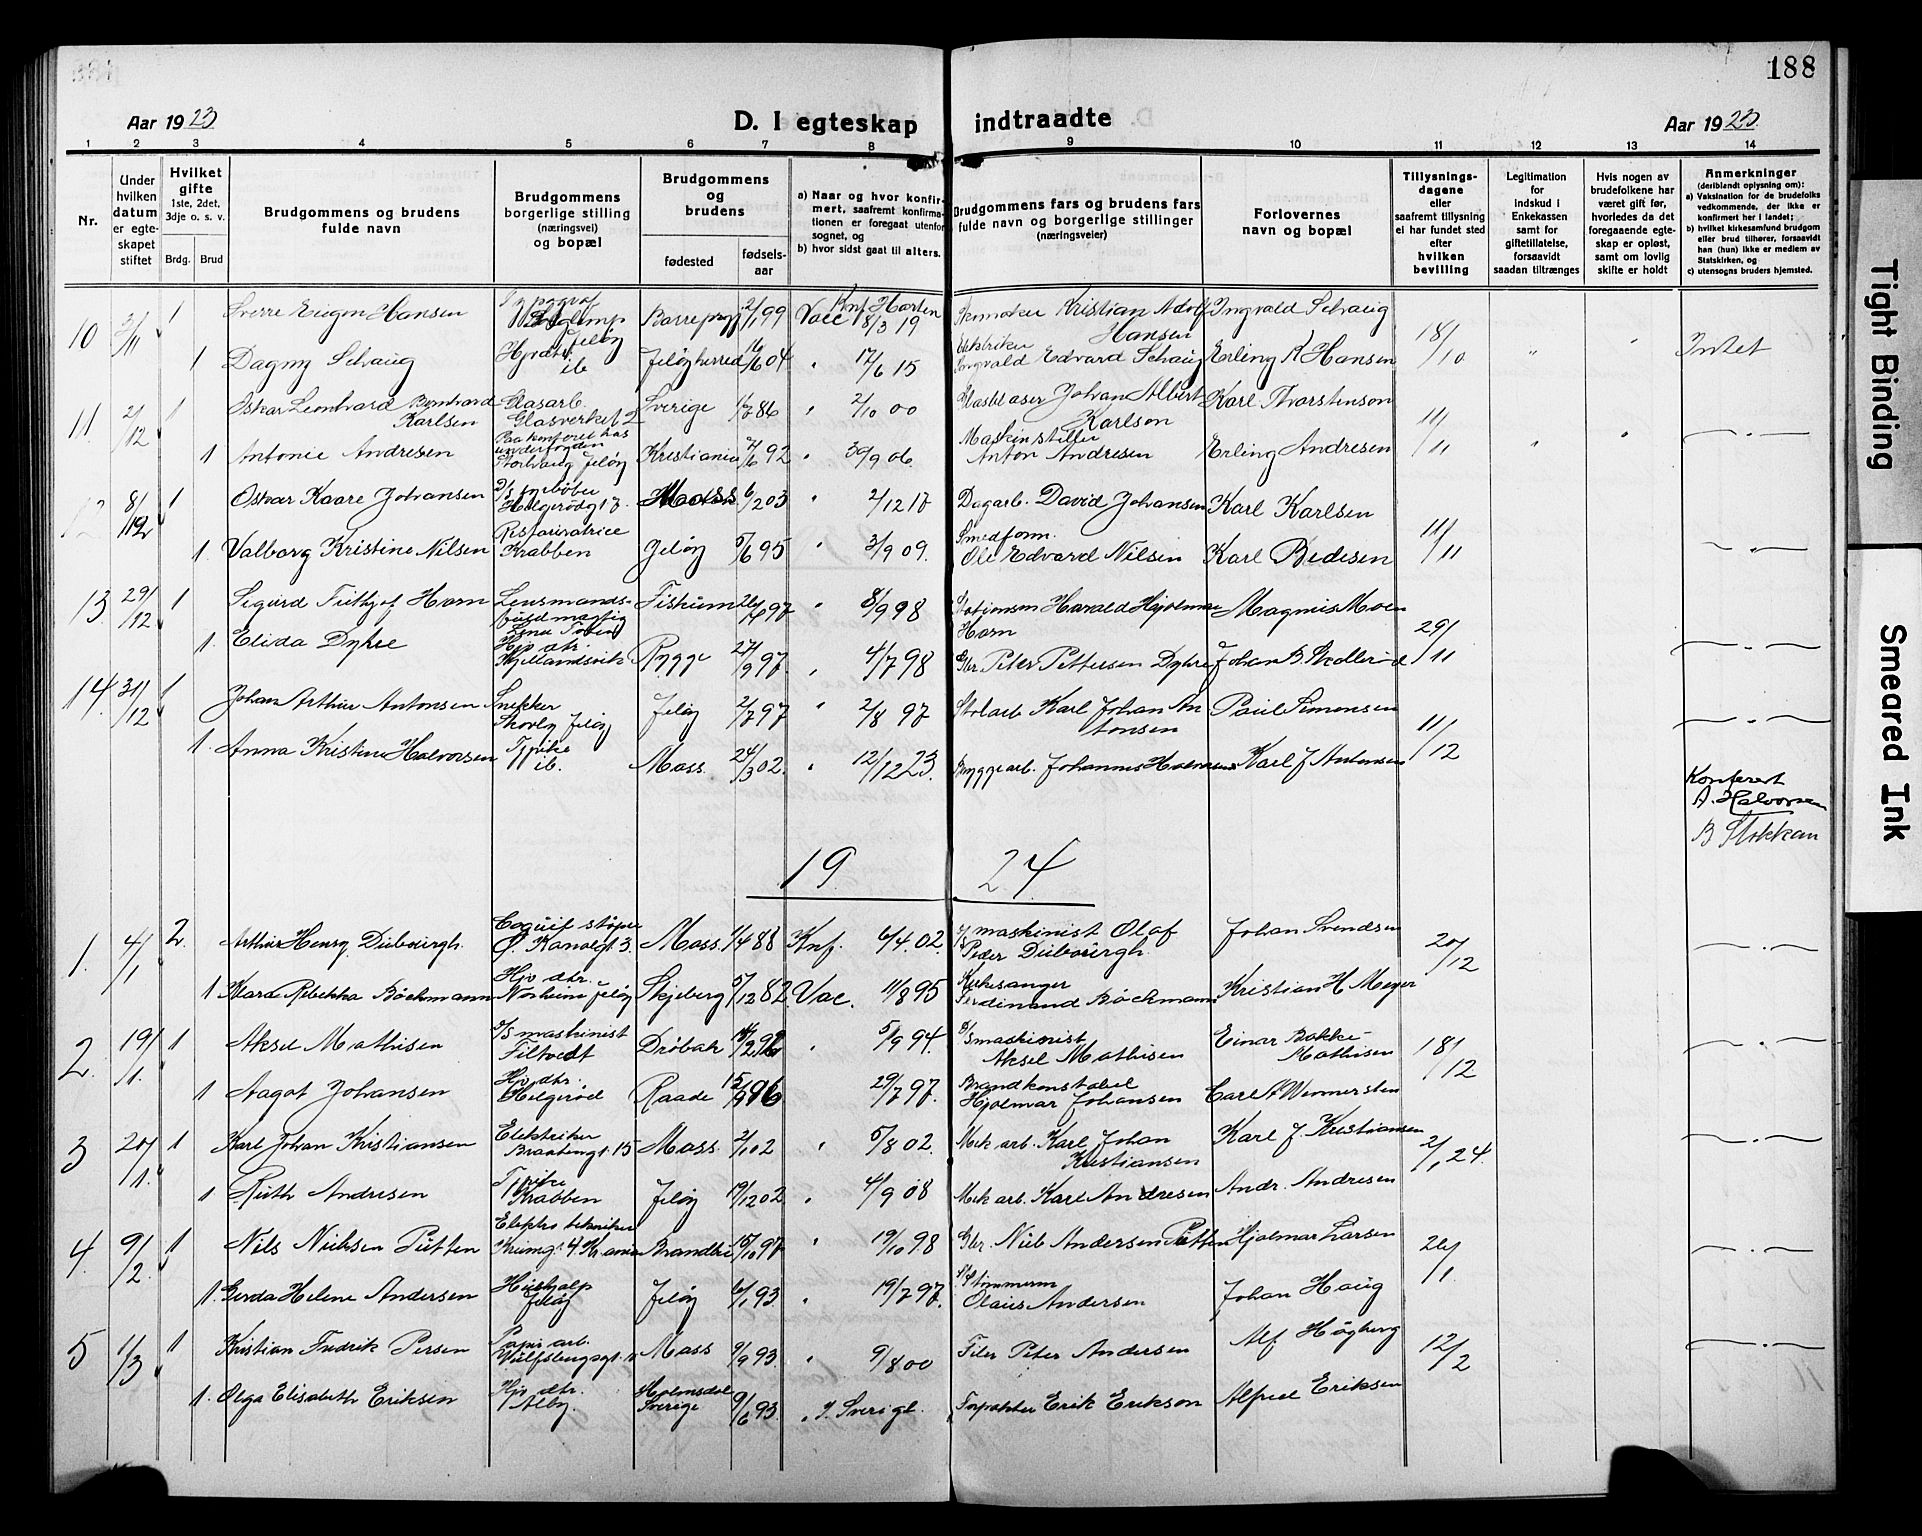 188
Aar 1923
D. I egteskap indtraadte
Aar 1923
1 2 3 4 5 6 7 8 9 10 11 12 13 14
Nr.
Under hvilken datum er egteskapet stiftet
Hvilket gifte 1ste, 2det, 3dje o. s. v.
Brdg. Brud
Brudgommens og brudens fulde navn
Brudgommens borgerlige stilling (næringsvei) og bopæl
Brudgommens og brudens
fødested fødselsaar
a) Naar og hvor konfirmert, saafremt konfirmationen er foregaat utenfor sognet, og
b) hvor sidst gaat til alters.
Brudgommens fars og brudens fars fulde navn og borgerlige stillinger (næringsveier)
Forlovernes navn og bopæl
Tillysningsdagene eller saafremt tillysning ei har fundet sted efter hvilken bevilling
Legitimation for indskud i Enkekassen samt for giftetillatelse, forsaavidt saadan tiltrænges
Hvis nogen av brudefolkene har været gift før, hvorledes da det foregaaende egteskap er opløst, samt om lovlig skifte er holdt
Anmerkninger (deriblandt oplysning om):
a) Vaksination for de brudefolks vedkommende, der ikke er konfirmert her i landet;
b) hvilket kirkesamfund brudgom eller brud tilhører, forsaavidt han (hun) ikke er medlem av Statskirken, og
c) utensogns bruders hjemsted.
10 3/11 1 Sverre Eugen Hansen Typograf Jeløy Borre 2/1 99 Vacc Knf Horten 18/3 19 Skomaker Kristian Adolf Hansen Ingvald Schaug 18/10 " " Intet
1 Dagny Schaug Hjvdtr. ib Jeløy herred 16/6 04 " 17/6 15 Elektriker Ingvald Edvard Schaug Erling K Hansen
11. 2/12 1 Oskar Leonhard Berntvard Karlsen Glasarb. Glasverket 2 Sverige 1/7 86 " 2/10 00 Glasblaser Johan Albert Karlson Karl Thorstenson 11/11 " "
1 Antonie Andresen Storhaug Jeløy Kristiania 7/6 92 " 30/9 06. Maskinstiller Anton Andresen Erling Andresen
12 8/12 1 Oskar Kaare Johansen Helgerødgt 17. Moss 6/2 03 " 2/12 17 Dagarb. David Johansen Karl Karlsen 11/11
1. Valborg Kristine Nilsen Krabben Jeløy 5/6 95 " 3/9 09. Smedform. Ole Edvard Nilsen Karl Bedesen
13. 29/12 1 Sigurd Fritjof Horn Lensmandsfuldmægtig Fiskum 26/4 97 " 8/9 98 Harald Hjalmar Horn Magnus Moen 29/11
1. Elida Dyhre Hjv dtr. Kjellandsvik Rygge 27/9 97 " 4/7 98 Gbr. Peter Pettersen Dyhre Johan B.
14. 31/12 1 Johan Arthur Antonsen Snekker Skoely Jeløy Jeløy 2/7 97 " 2/8 97 Stolarb Karl Johan Antonsen Paul Simonsen 11/12
1. Anna Kristine Halvorsen ib. Moss. 24/3 02. " 12/12 23. Bryggearb. Johannes Halvorsen Karl J Antonsen
Konferert
A. Halvorsen
B Stokkan
19 24
1. 4/1 2. Arthur Henry Dübourgh. Coquil støper Ø. Kanalgt 3. Moss. 1/4 88 Knf. 6/4. 02. maskinist Olaf Peder Dübourgh. Johan Svendsen 20/12
1 Mara Rebekka Bøckmann Hjv dtr. Norheim Jeløy Skjeberg 5/12 82 Vac. 11/8 95 Kirkesanger Ferdinand Bøckmann Kristian H Meyer
2. 19/1. 1 Aksel Mathisen D/S maskinist Filtvedt Drøbak " 5/9 94. D/S maskinist Aksel Mathisen Einar Bakke Mathisen 18/12
1 Aagot Johansen Hjv dtr. Helgerød Raade " 29/7 97. Brandkonstabel Hjalmar Johansen Carl A Wennersten
3 20/1. 1 Karl Johan Kristiansen Elektriker Braatengt. 15 Moss. 2/1 02 " 5/8 02. Mek arb. Karl Johan Kristiansen Karl J. Kristiansen 2/1 24.
1 Ruth Andresen Krabben Jeløy 19/12 02 " 4/9 08 Mek arb. Karl Andresen Andr. Andresen
4. 9/2. 1 Nils Nielsen Pütten Elektro tekniker Brandbu 15/10 97 " 19/10 98 Gbr. Nils Andersen Pütten Hjalmar Larsen 26/1
1. Gerda Helene Andersen Hushjelp Jeløy Jeløy 6/1 93. " 19/7 97. Olaus Andersen Johan Haug
5 1/3 1 Kristian Fredrik Persen Papir arb. Moss 9/9 93. " 9/8 00 Filer Peter Andersen Alf Høgberg 12/2
1. Olga Elisabeth Eriksen Hjv dtr. Alby. Holmsdal Sverige 9/6 93. " I Sverige. Forpakter Erik Erikson Alfred Eriksen
Tight Binding
Smeared Ink